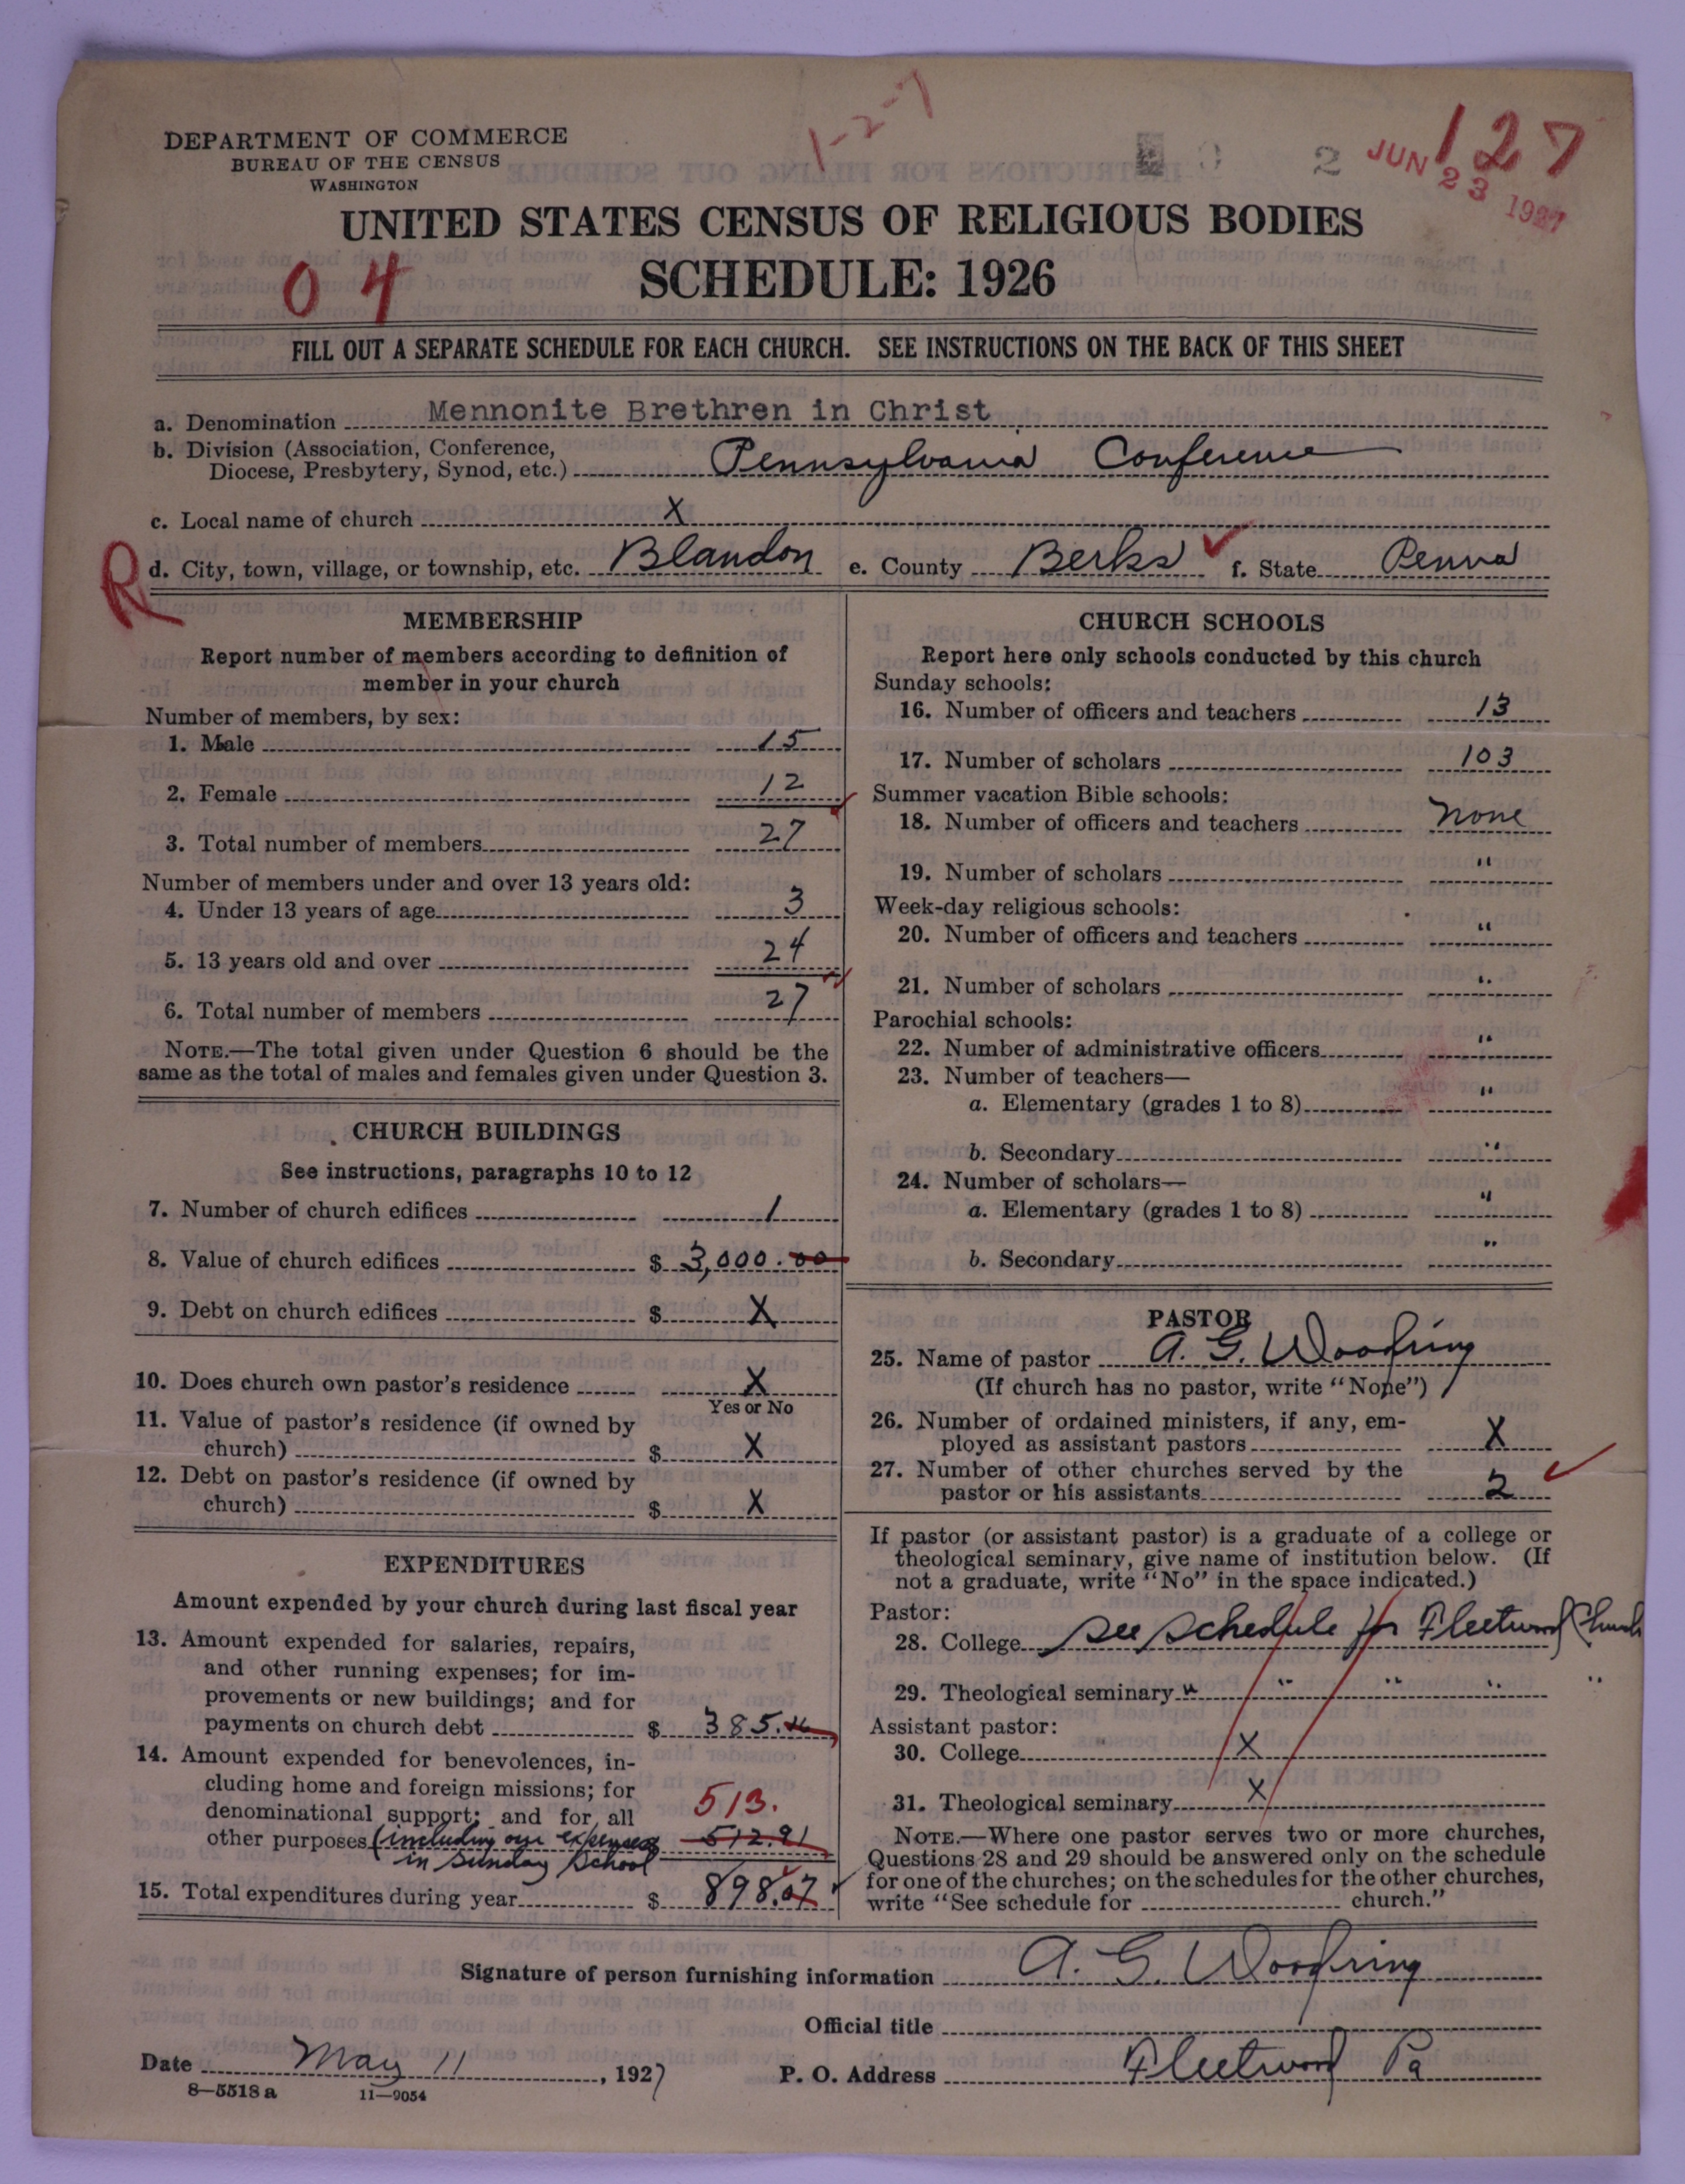 1-2-7
127
DEPARTMENT OF COMMERCE
BUREAU OF THE CENSUS
WASHINGTON
2
JUN 23 1927
UNITED STATES CENSUS OF RELIGIOUS BODIES
04
SCHEDULE: 1926
FILL OUT A SEPARATE SCHEDULE FOR EACH CHURCH. SEE INSTRUCTIONS ON THE BACK OF THIS SHEET
a. Denomination Mennonite Brethren in Christ
b. Division (Association, Conference,
Diocese, Presbytery, Synod, etc.) Pennsylvania Conference
c. Local name of church X
R
d. City, town, village, or township, etc. Blandon e. County Berks ✓ f. State Penna
MEMBERSHIP
Report number of members according to definition of
member in your church
Number of members, by sex:
1. Male 15
2. Female 12
3. Total number of members 27
Number of members under and over 13 years old:
4. Under 13 years of age 3
5. 13 years old and over 24
6. Total number of members 27
NOTE.—The total given under Question 6 should be the
same as the total of males and females given under Question 3.
CHURCH BUILDINGS
See instructions, paragraphs 10 to 12
7. Number of church edifices 1
8. Value of church edifices $ 3,000.00
9. Debt on church edifices $ X
10. Does church own pastor's residence X
Yes or No
11. Value of pastor's residence (if owned by
church) $ X
12. Debt on pastor's residence (if owned by
church) $ X
EXPENDITURES
Amount expended by your church during last fiscal year
13. Amount expended for salaries, repairs,
and other running expenses; for im-
provements or new buildings; and for
payments on church debt $ 385.
14. Amount expended for benevolences, in-
cluding home and foreign missions; for
denominational support; and for all 513.
other purposes (including our expenses 512.91
in Sunday School
15. Total expenditures during year $ 898.07
CHURCH SCHOOLS
Report here only schools conducted by this church
Sunday schools:
16. Number of officers and teachers 13
17. Number of scholars 103
Summer vacation Bible schools:
18. Number of officers and teachers none
19. Number of scholars "
Week-day religious schools:
20. Number of officers and teachers "
21. Number of scholars "
Parochial schools:
22. Number of administrative officers "
23. Number of teachers—
a. Elementary (grades 1 to 8) "
b. Secondary "
24. Number of scholars—
a. Elementary (grades 1 to 8) "
b. Secondary "
PASTOR
25. Name of pastor A. G. Woodring
(If church has no pastor, write "None")
26. Number of ordained ministers, if any, em-
ployed as assistant pastors X
27. Number of other churches served by the
pastor or his assistants 2 ✓
If pastor (or assistant pastor) is a graduate of a college or
theological seminary, give name of institution below. (If
not a graduate, write "No" in the space indicated.)
Pastor:
28. College See schedule for Fleetwood Church
29. Theological seminary " " " " "
Assistant pastor:
30. College X
31. Theological seminary X
NOTE.—Where one pastor serves two or more churches,
Questions 28 and 29 should be answered only on the schedule
for one of the churches; on the schedules for the other churches,
write "See schedule for church."
Signature of person furnishing information A. G. Woodring
Official title
Date May 11, 1927 P. O. Address Fleetwood Pa
8—5518 a 11—9054